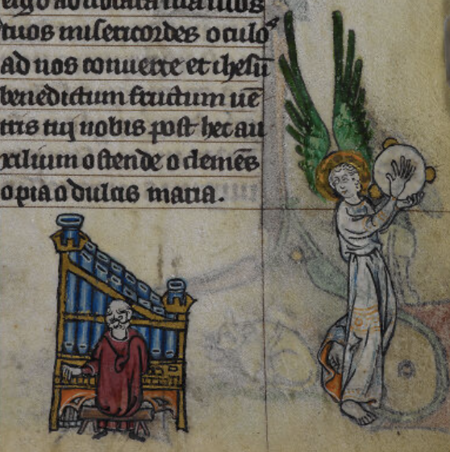 tuos misericordes oculos
ad nos conuerte et ihesū
benedictum fructum uē
tris tuj nobis post hec au
xilium ostende o clemēs
o pia o dulcis maria.